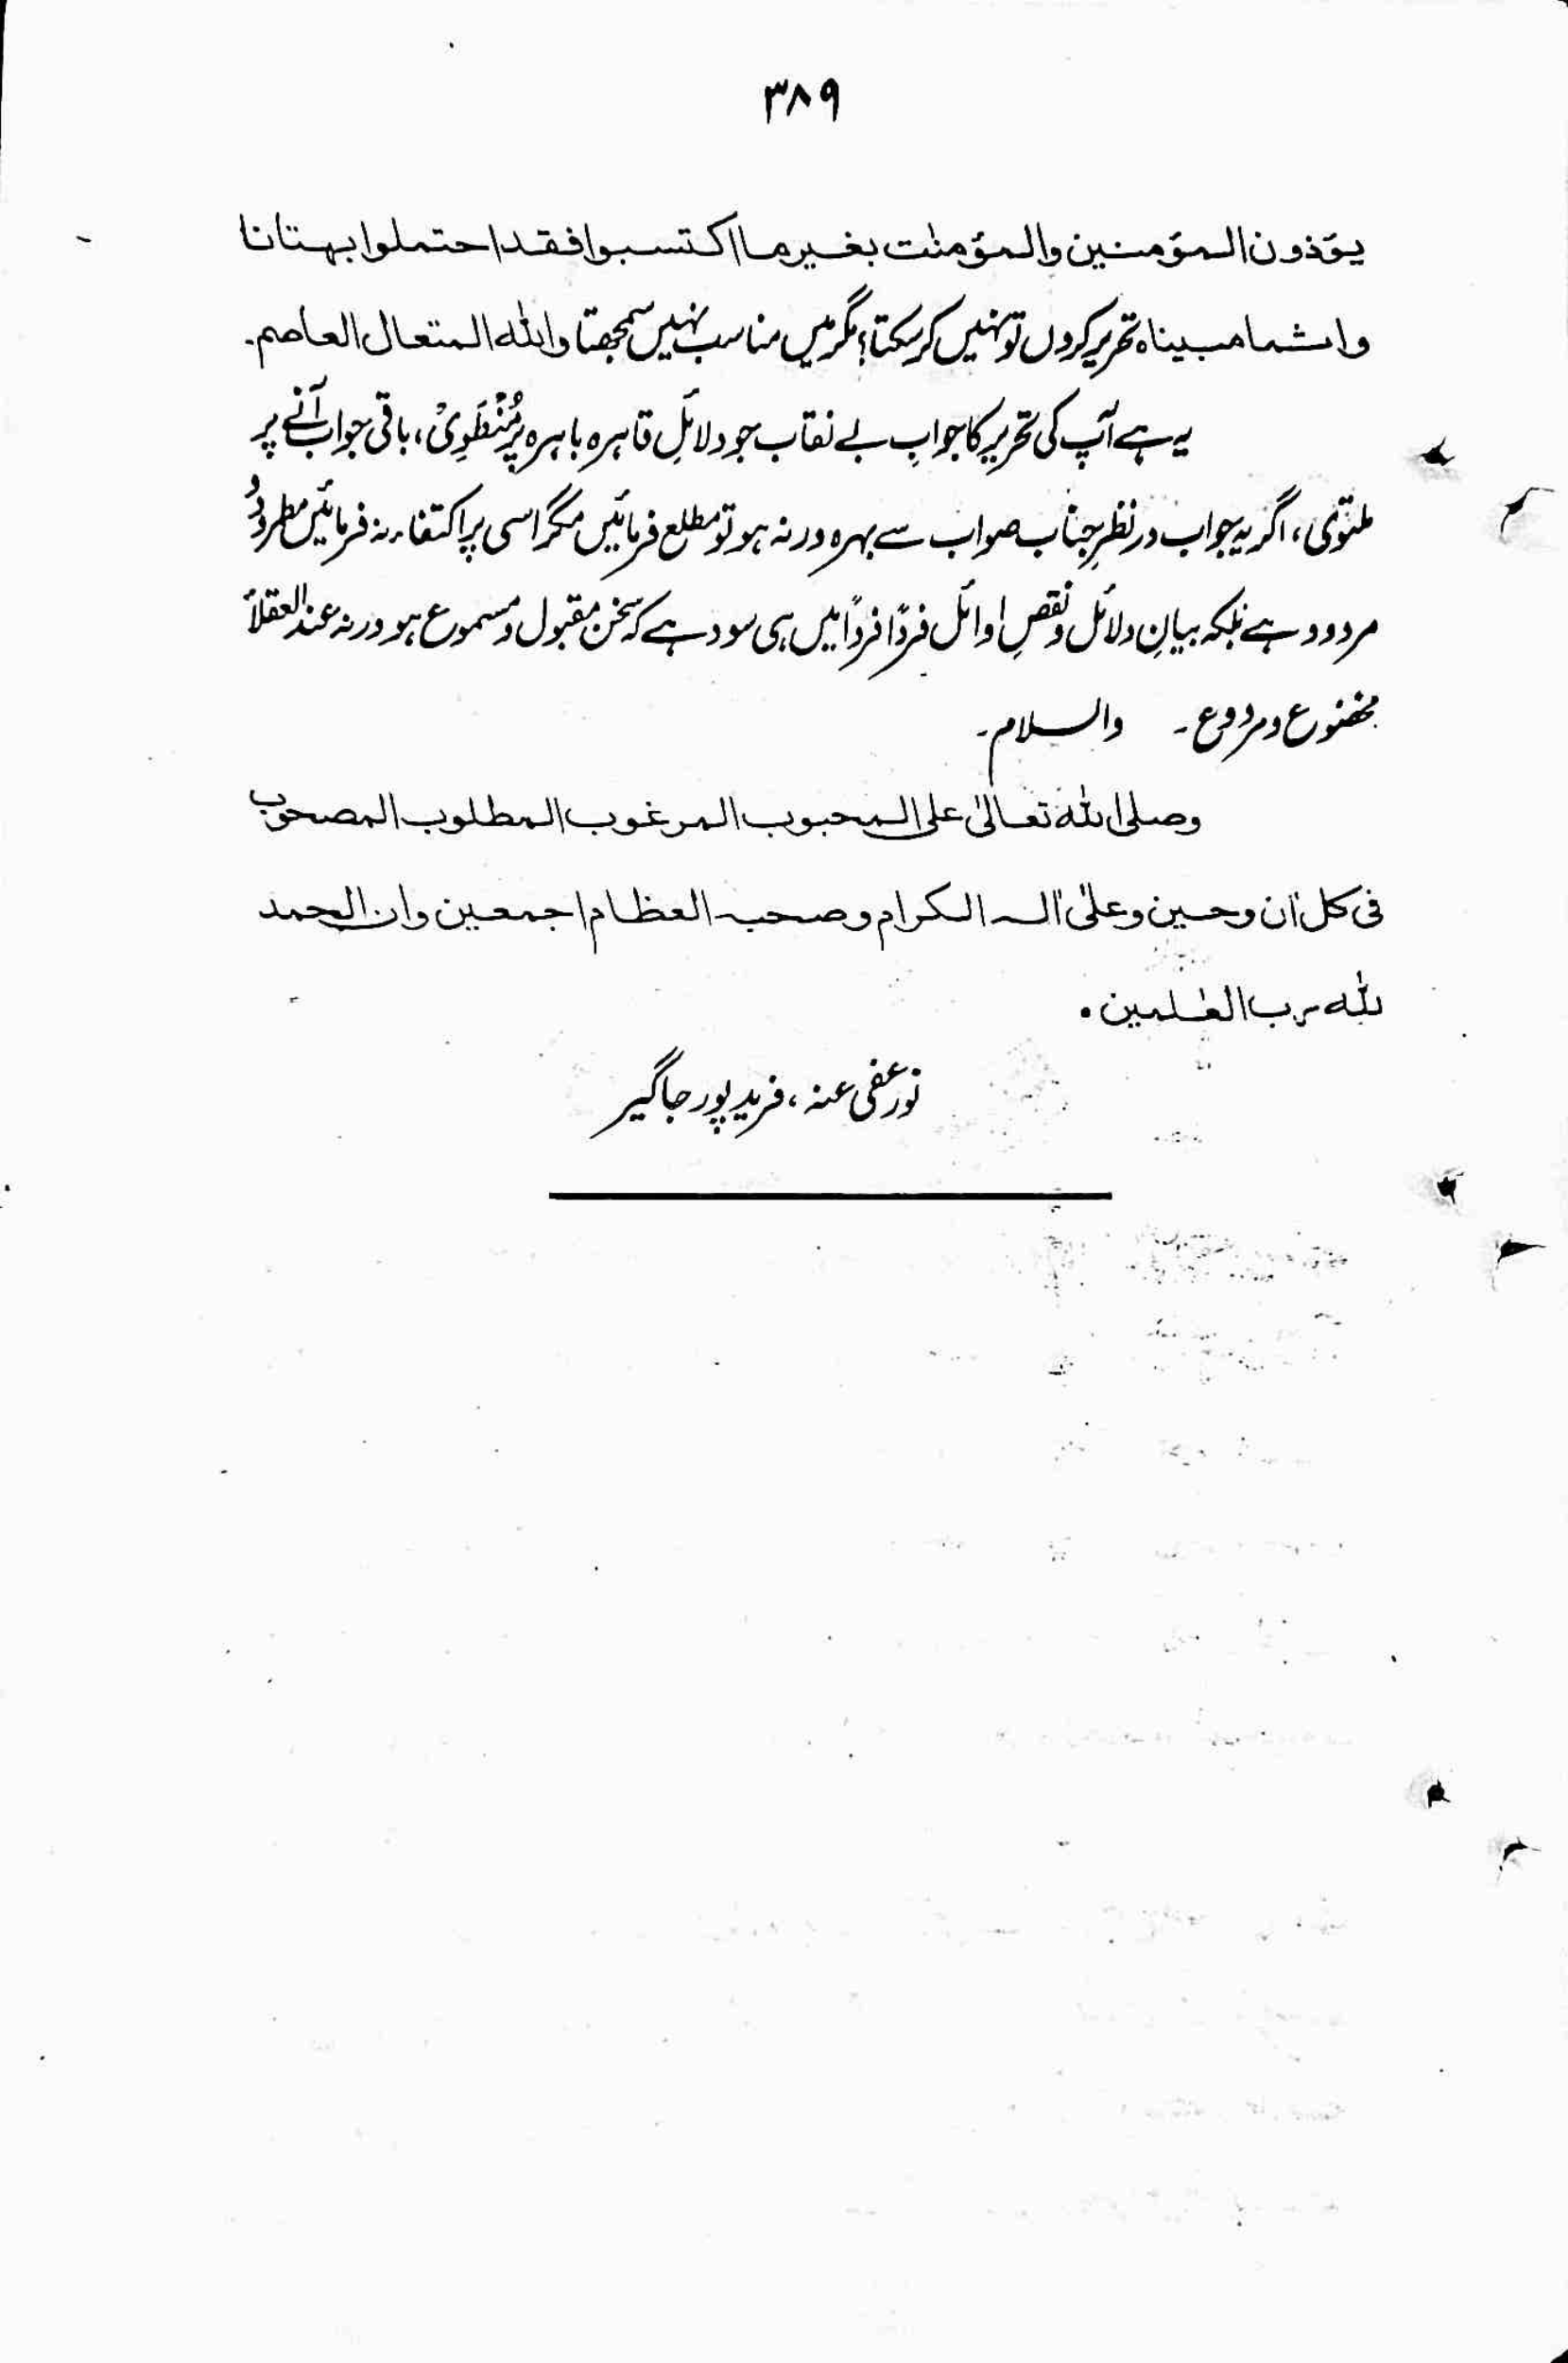 ۳۸۹
یؤذون المؤمنین والمؤمنٰت بغیر ما اکتسبوا فقد احتملوا بہتانا
واثما مبینا ہ تحریر کروں تو نہیں کر سکتا؟ مگر میں مناسب نہیں سمجھتا واللہ المتعال العاصم۔
یہ ہے آپ کی تحریر کا جوابِ بے نقاب جو دلائلِ قاہرہ باہرہ پر مُنْطَوِیْ، باقی جواب آنے پر
ملتوی، اگر یہ جواب در نظرِ جناب صواب سے بہرہ ور نہ ہو تو مطلع فرمائیں مگر اسی پر اکتفاء نہ فرمائیں مطرودُ
مردود ہے بلکہ بیانِ دلائل و نقصِ اوائل فردًا فردًا میں ہی سود ہے کہ سخن مقبول و مسموع ہو ورنہ عند العقلاء
مخضوع و مردوع۔ والسلام۔
وصلی اللہ تعالیٰ علی المحبوب المرغوب المطلوب المصحوب
فی کل اٰن وحین وعلیٰ اٰلہ الکرام وصحبہ العظام اجمعین وان الحمد
للہ رب العٰلمین۰
نور عفی عنہ، فرید پور جاگیر